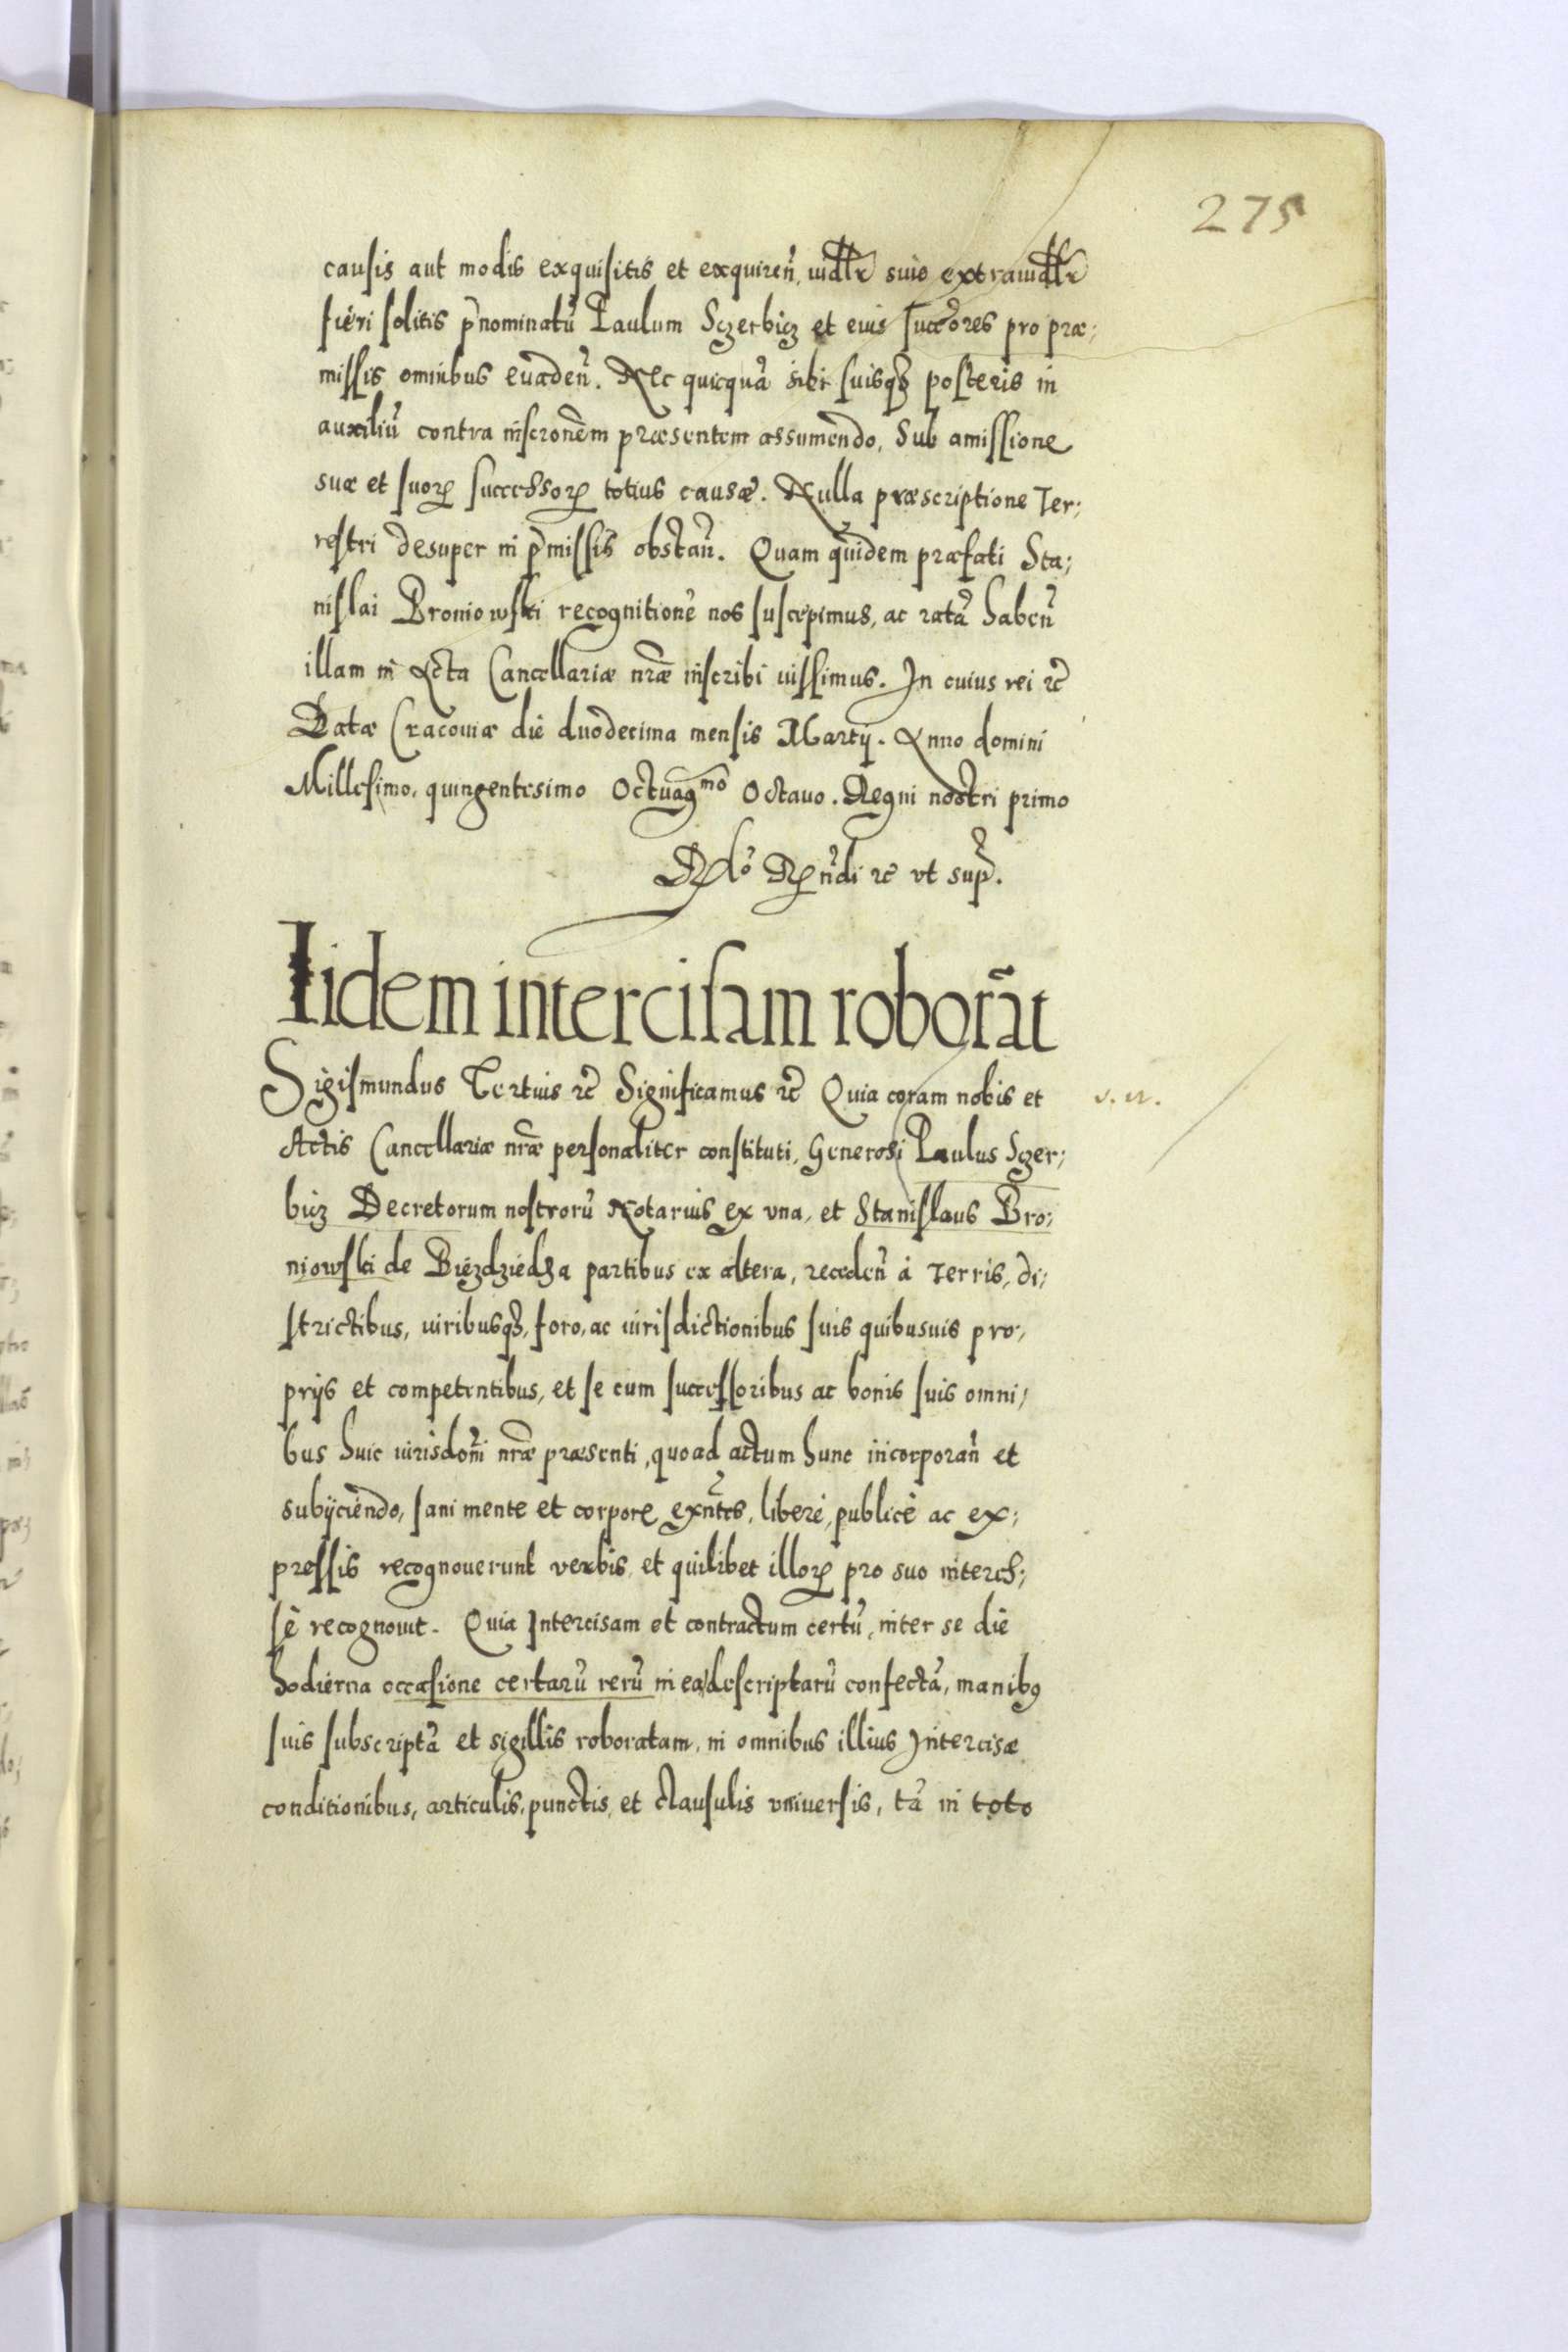 275
causis aut modis exquisitis et exquiren̄, iud̄lr siue extraiud̄lr
fieri solitis p̄nominatū Paulum Sczerbicz et eius succ̄ores pro præ;
missis omnibus euaden̄. Nec quicquā sibi suisqʒ posteris in
auxiliū contra inscr̄onem præsentem assumendo, Sub amissione
suæ et suoꝝ successoꝝ totius causæ. Nulla præscriptione Ter;
restri desuper in p̄missis obstan̄. Quam quidem præfati Sta;
nislai Broniowski recognitionē nos suscepimus, ac ratā haben̄
illam in Acta Cancellariæ nr̄æ inscribi iussimus. In cuius rei ꝛc̄
Datæ Cracouiæ die duodecima mensis Martij. Anno domini
Millesimo, quingentesimo Octuagmo Octauo. Regni nostri primo
ut sup̄.
Iidem intercisam roborāt
Sigismundus Tertius ꝛc̄ Significamus ꝛc̄ Quia coram nobis et
Actis Cancellariæ nr̄æ personaliter constituti, Generosi Paulus Sczer;
bicz Decretorum nostrorū Notarius ex vna, et Stanislaus Bro;
niowski de Biezdziedza partibus ex altera, receden̄ à Terris, di;
strictibus, iuribusqʒ, foro, ac iurisdictionibus suis quibusuis pro;
prijs et competentibus, et se cum successoribus ac bonis suis omni;
bus huic iurisdōni nr̄æ præsenti, quoad actum hunc incorporan̄ et
subijciendo, sani mente et corpore exn̄tes, liberè, publicè ac ex;
pressis recognouerunt verbis, et quilibet illoꝝ pro suo interes;
se recognouit. Quia Intercisam et contractum certū, inter se die
hodierna occasione certarū rerū in ea descriptarū confectā, manibꝰ
suis subscriptā et sigillis roboratam, in omnibus illius Intercisæ
conditionibus, articulis, punctis, et clausulis vniuersis, tā in toto